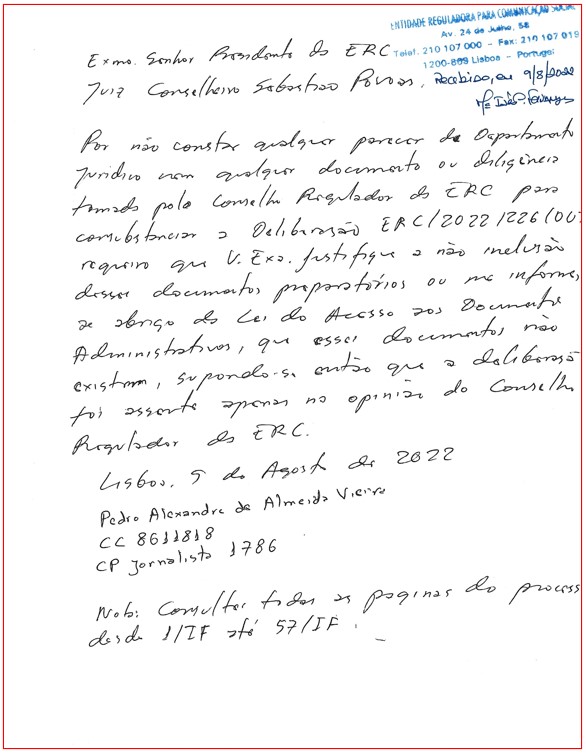 ENTIDADE REGULADORA PARA COMUNICAÇÃO SOCIAL
Av. 24 de Julho, 58
Telef. 210 107 000 - Fax: 210 107 019
1200-869 Lisboa - Portugal
Recebido, em 9/8/2022
Exmo. Senhor Presidente da ERC
Juiz Conselheiro Sebastião Póvoas,
Por não constar qualquer parecer do Departamento
Jurídico nem qualquer documento ou diligência
tomada pelo Conselho Regulador da ERC para
consubstanciar a Deliberação ERC/2022/226(OUT
requeiro que V. Exa. justifique a não inclusão
desses documentos preparatórios ou me informe,
ao abrigo da Lei do Acesso aos Documentos
Administrativos, que esses documentos não
existem, supondo-se então que a deliberação
foi assente apenas na opinião do Conselho
Regulador da ERC.
Lisboa, 9 de Agosto de 2022
Pedro Alexandre de Almeida Vieira
CC 8611818
CP Jornalista 1786
Nota: Consultei todas as páginas do processo
desde 1/IF até 57/IF.